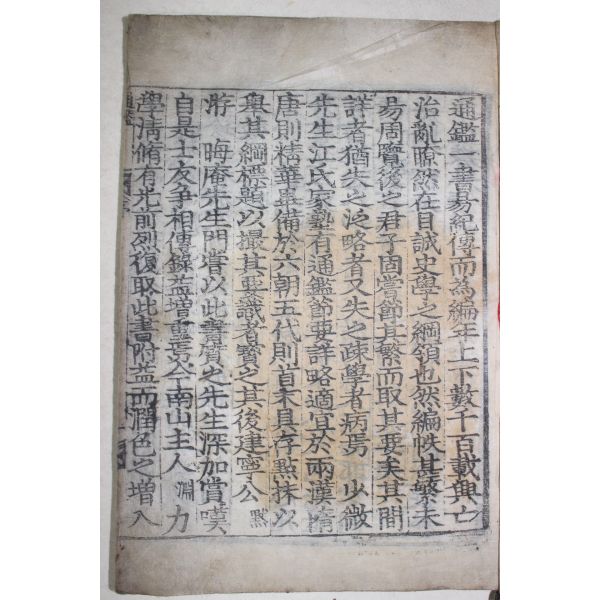 通鑑一書易紀傳而為編年上下數千百載興亡
治亂瞭然在目誠史學之綱領也然編帙甚繁未
易周覽後之君子固嘗節其繁而取其要矣其間
詳者猶失之泛略者又失之疎學者病焉 少微
先生江氏家塾有通鑑節要詳略適宜於兩漢隋
唐則精華畢備於六朝五代則首末具存點抹以
舉其綱標題以撮其要識者寶之其後建寧公 默
游 晦庵先生門嘗以此書質之先生深加賞嘆
自是士友爭相傳錄益增重焉今南山主人 淵 力
學淸脩有光前烈復取此書附益而潤色之增入